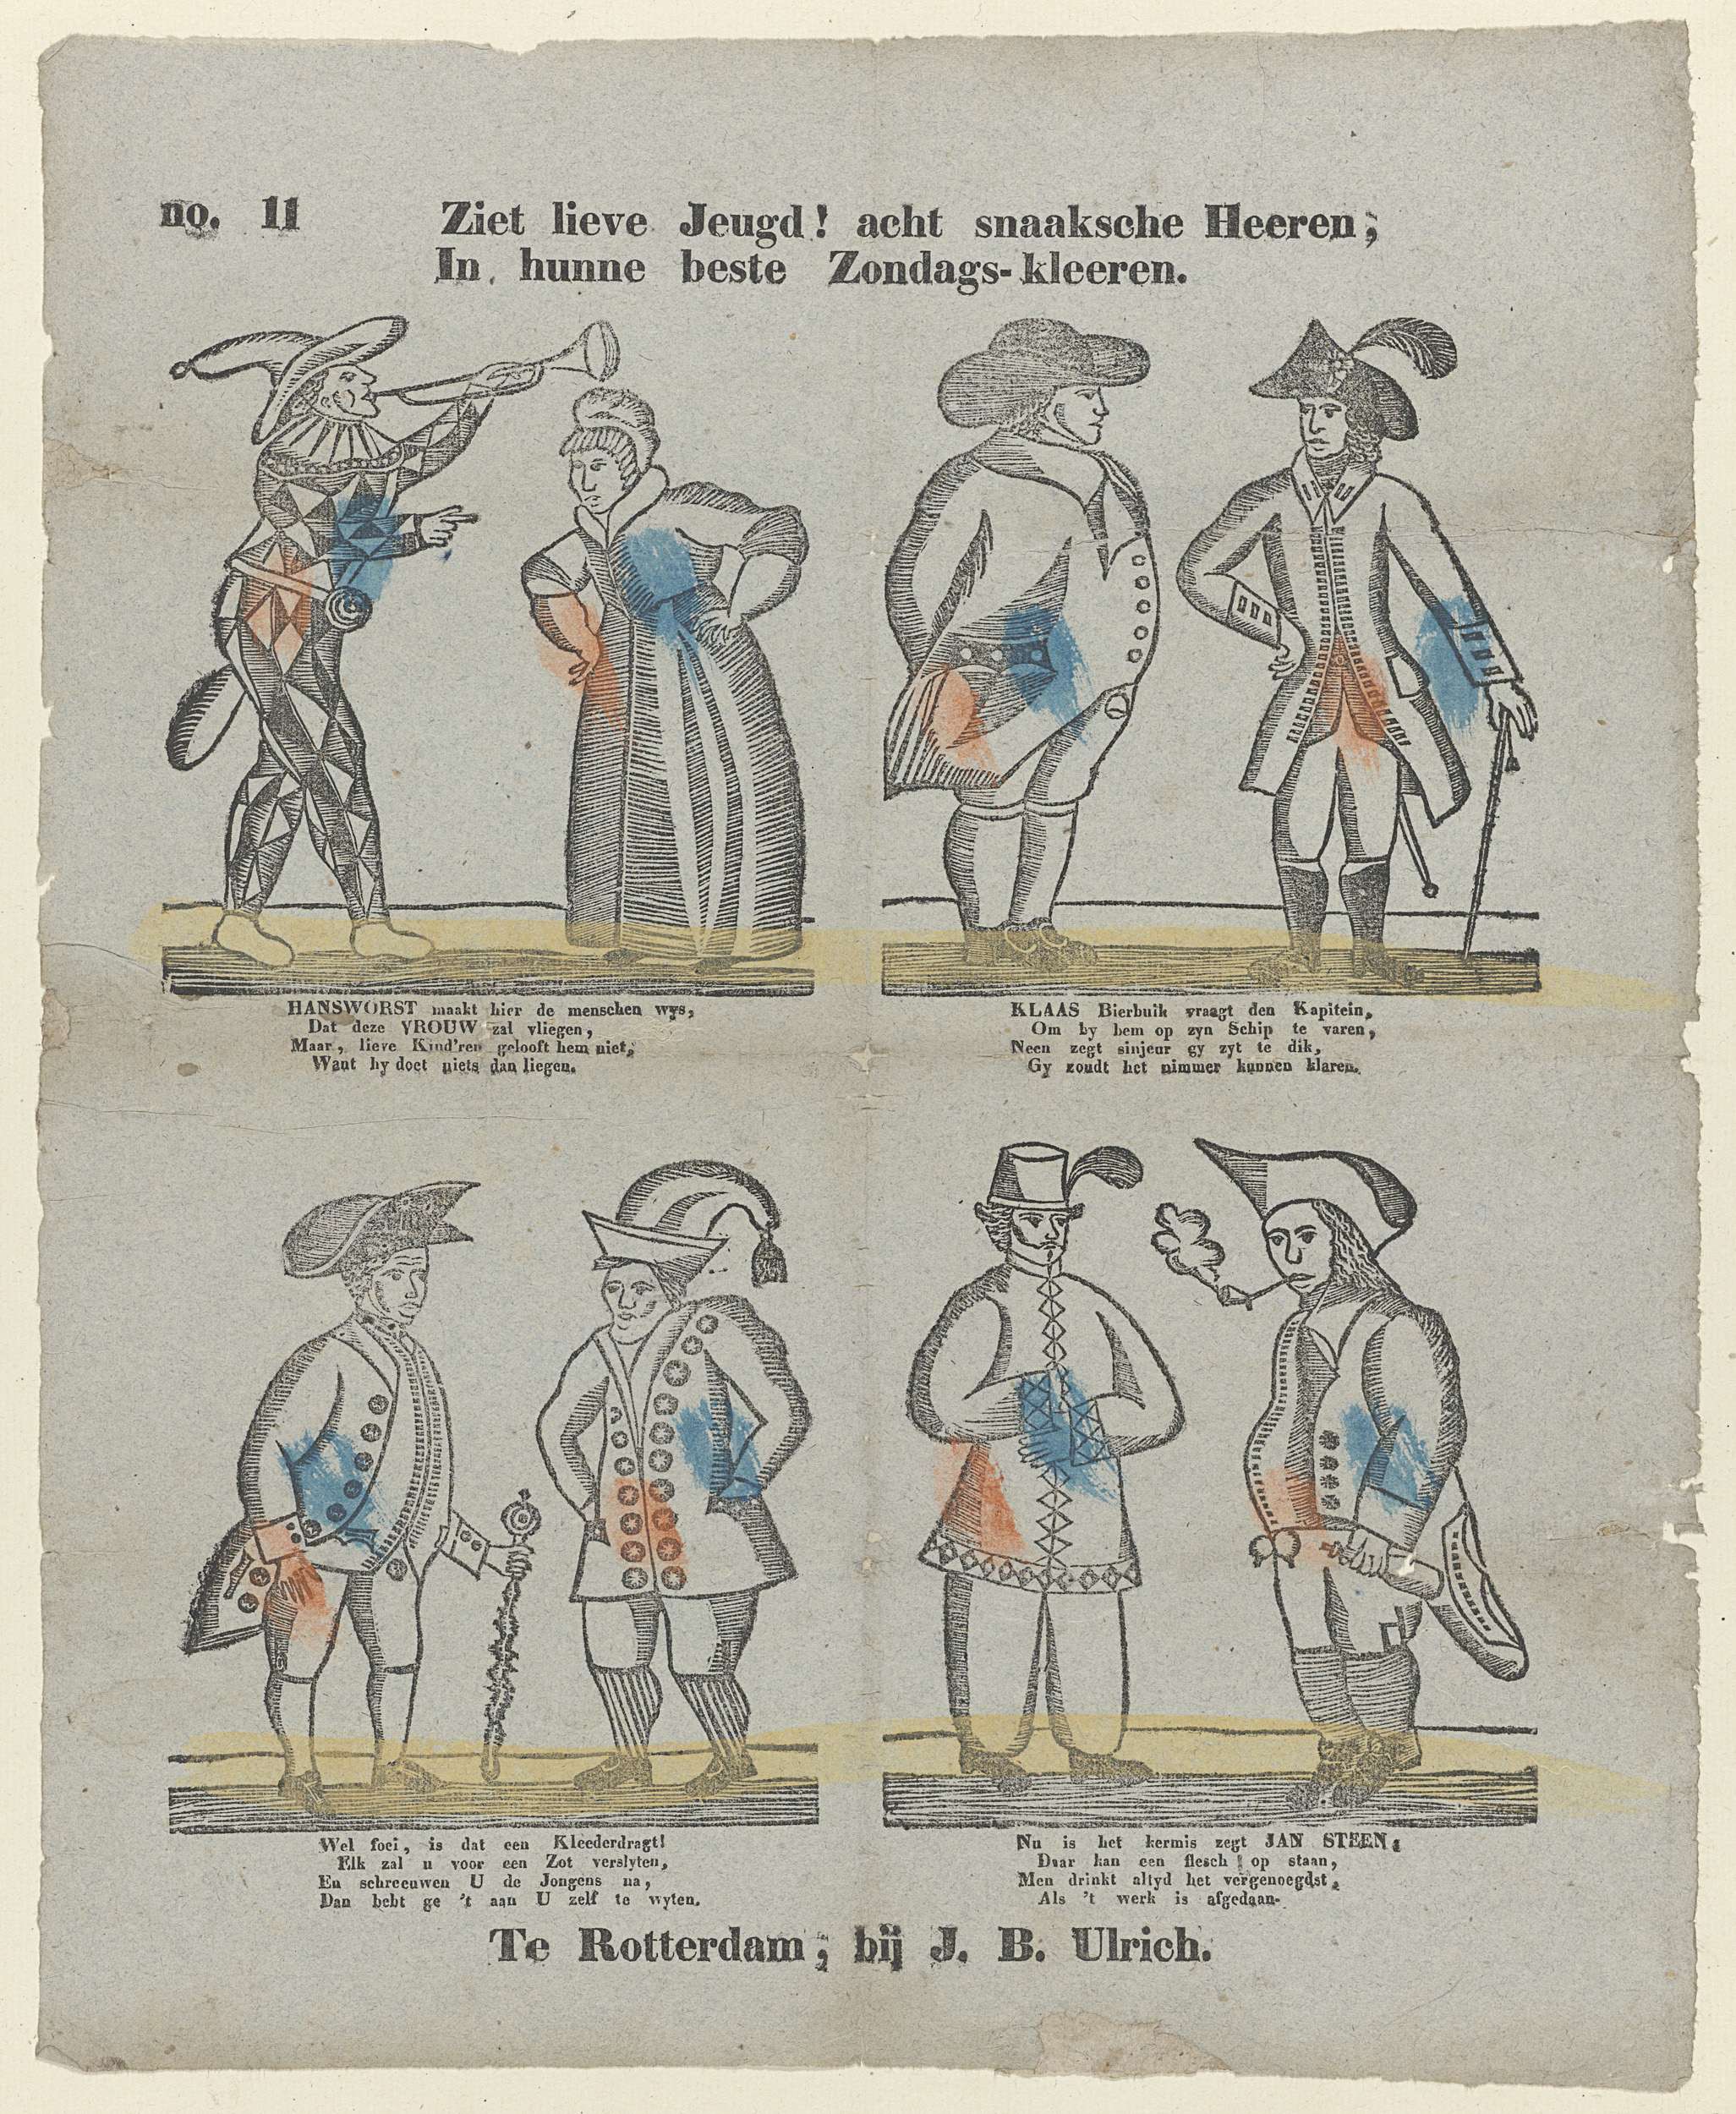 no. 11
Ziet lieve Jeugd! acht snaaksche Heeren;
In hunne beste Zondags-kleeren.
HANSWORST maakt hier de menschen wys,
Dat deze VROUW zal vliegen,
Maar, lieve Kind'ren gelooft hem niet,
Want hy doet niets dan liegen.
KLAAS Bierbuik vraagt den Kapitein,
Om by hem op zyn Schip te varen,
Neen zegt sinjeur gy zyt te dik,
Gy zoudt het nimmer kunnen klaren.
Wel foei, is dat een Kleederdragt!
Elk zal u voor een Zot verslyten,
En schreeuwen U de Jongens na,
Dan hebt ge 't aan U zelf te wyten.
Nu is het kermis zegt JAN STEEN,
Daar kan een flesch op staan,
Men drinkt altyd het vergenoegdst,
Als 't werk is afgedaan.
Te Rotterdam, bij J. B. Ulrich.